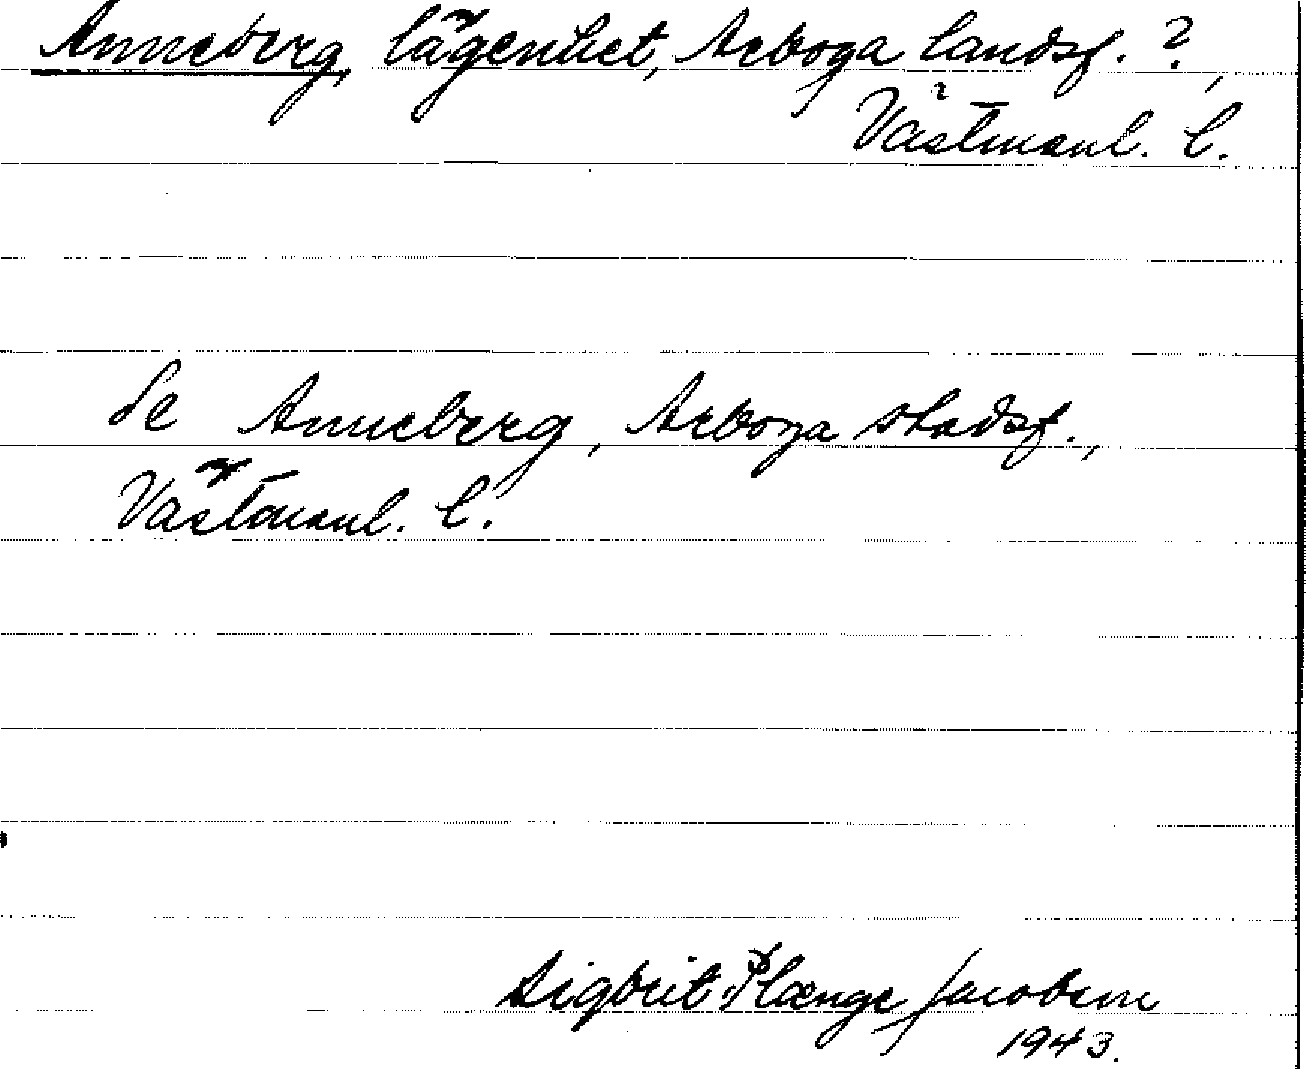 Anneberg, lägenhet, Arboga landsf. ?,
Västmanl. l.
Se Anneberg, Arboga stadsf.,
Västmanl. l.
Sigbrit Plænge Jacobson
1943.